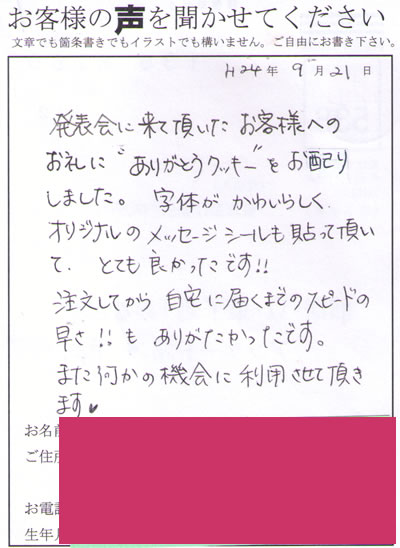 お客様の声を聞かせてください
文章でも箇条書きでもイラストでも構いません。ご自由にお書き下さい。
H24年 9月21日
発表会に来て頂いた お客様への
お礼に"ありがとうクッキー"をお配り
しました。 字体が かわいらしく
オリジナルの メッセージシールも貼って頂い
て、とても良かったです!!
注文してから 自宅に届くまでのスピードの
早さ!!も ありがたかったです。
また何かの機会に利用させて頂き
ます♥
お名前
ご住所
お電話
生年月